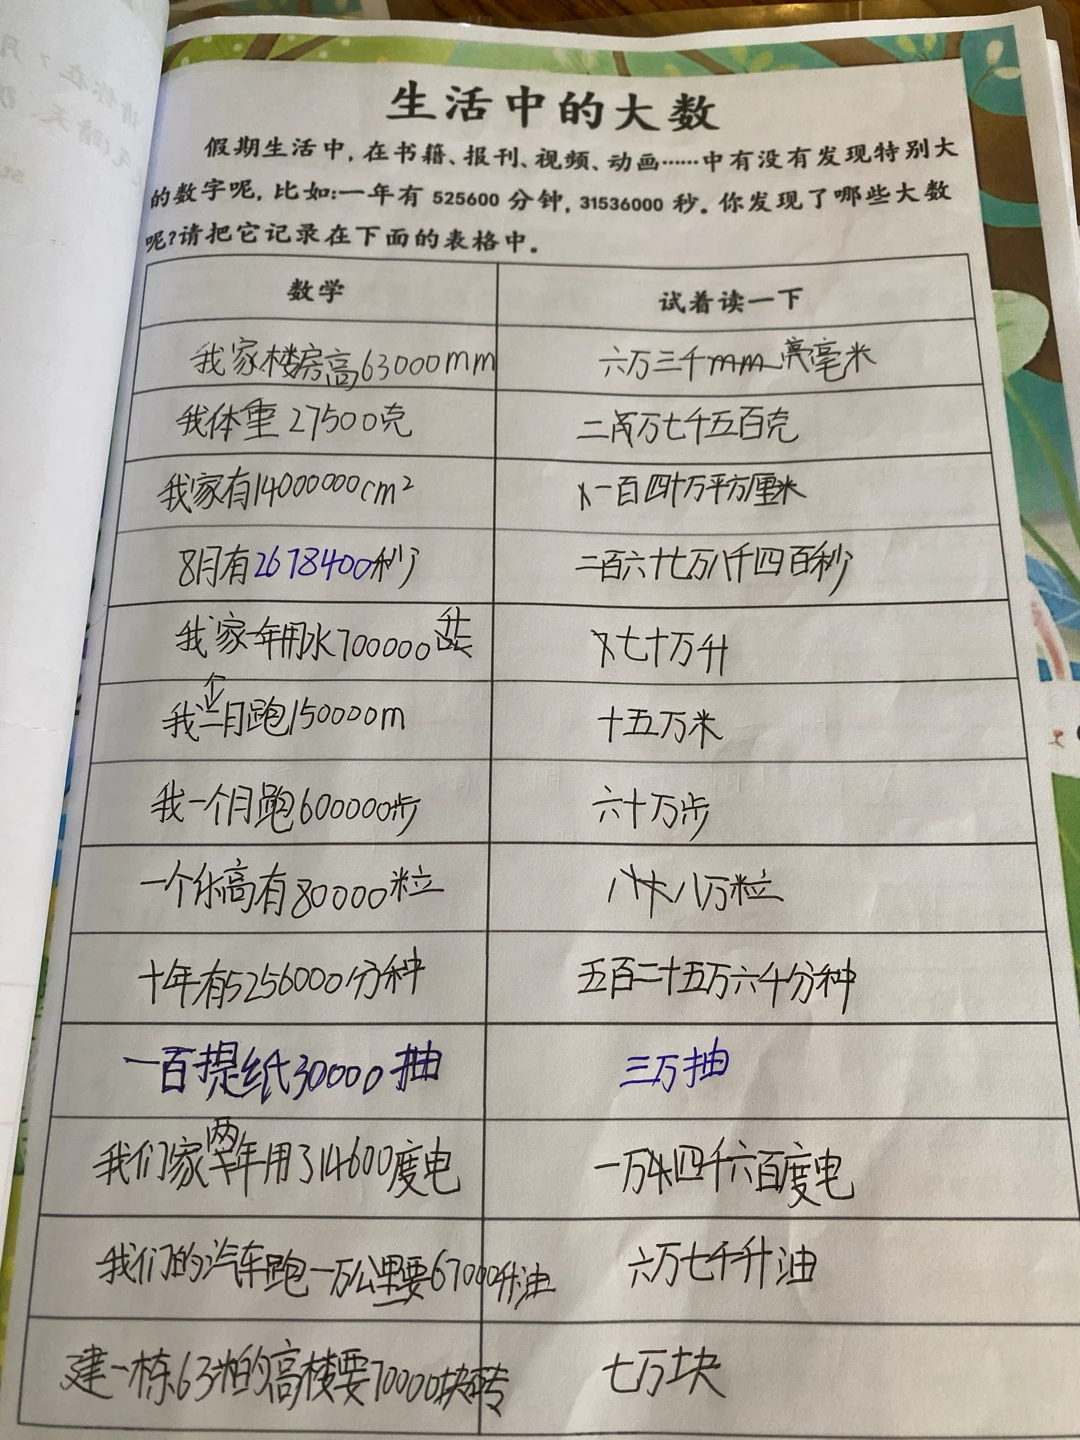 生活中的大数
假期生活中,在书籍、报刊、视频、动画……中有没有发现特别大
的数字呢,比如:一年有 525600 分钟,31536000 秒。你发现了哪些大数
呢?请把它记录在下面的表格中。
数学
试着读一下
我家楼房高63000mm
六万三千毫米
我体重27500克
二万七千五百克
我家有14000000cm²
一百四十万平方厘米
8月有2678400秒
二百六十七万八千四百秒
我家一年用水700000升
七十万升
我一月跑150000m
十五万米
我一个月跑600000步
六十万步
一个高有80000粒
八万粒
十年有5256000分种
五百二十五万六千分种
一百提纸30000抽
三万抽
我们家两年用了14600度电
一万四千六百度电
我们的汽车跑一万公里要67000升油
六万七千升油
建一栋63米的高楼要70000块砖
七万块